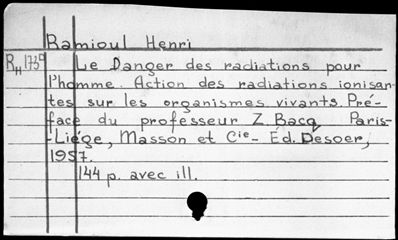 Ramioul Henri
RH 173a Le Danger des radiations pour
l'homme. Action des radiations ionisan-
tes sur les organismes vivants. Pré-
face du professeur Z. Bacq Paris-
-Liége, Masson et Cie- Éd. Desoer,
1957.
144 p. avec ill.